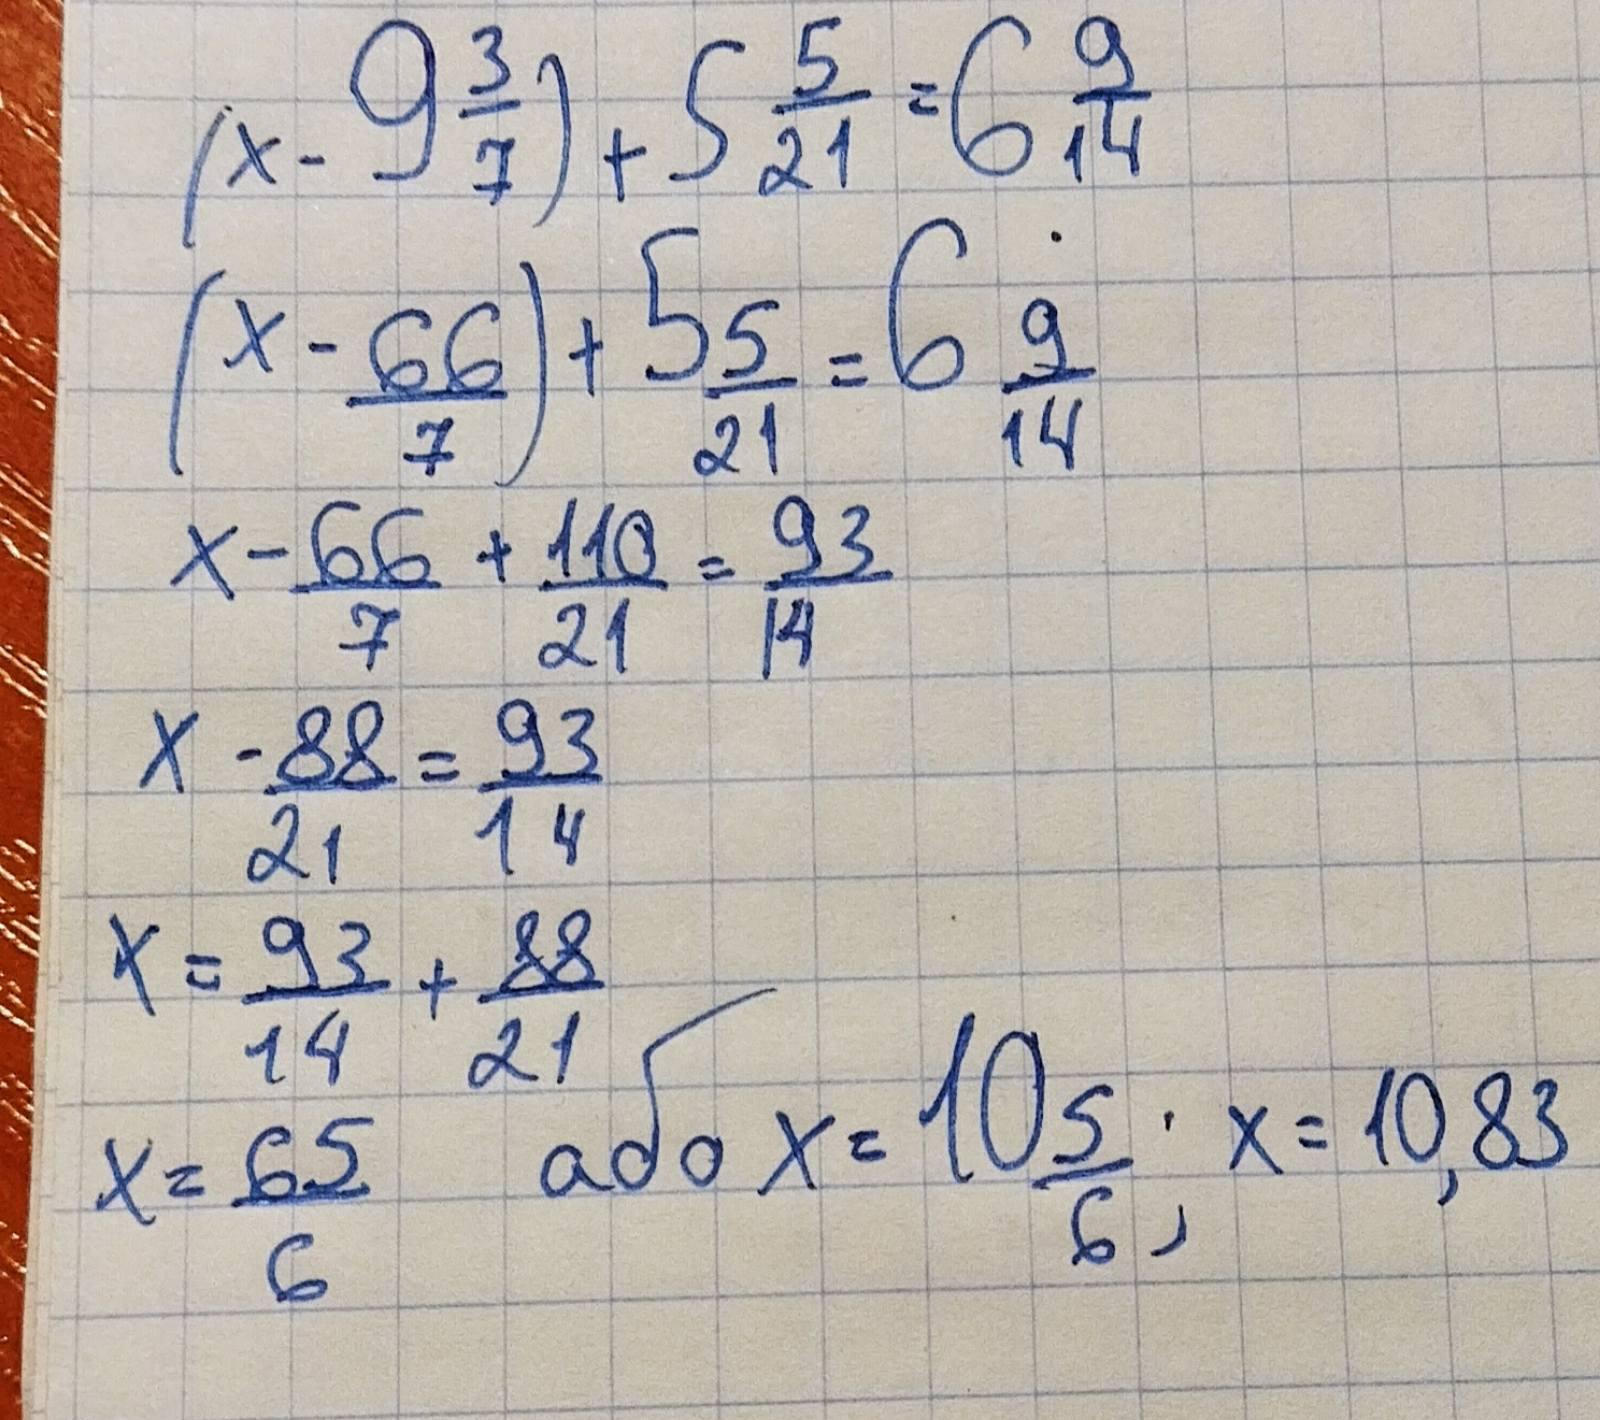 (x - 9 3/7) + 5 5/21 = 6 9/14
(x - 66/7) + 5 5/21 = 6 9/14
x - 66/7 + 110/21 = 93/14
x - 88/21 = 93/14
x = 93/14 + 88/21
x = 65/6 або x = 10 5/6; x = 10,83